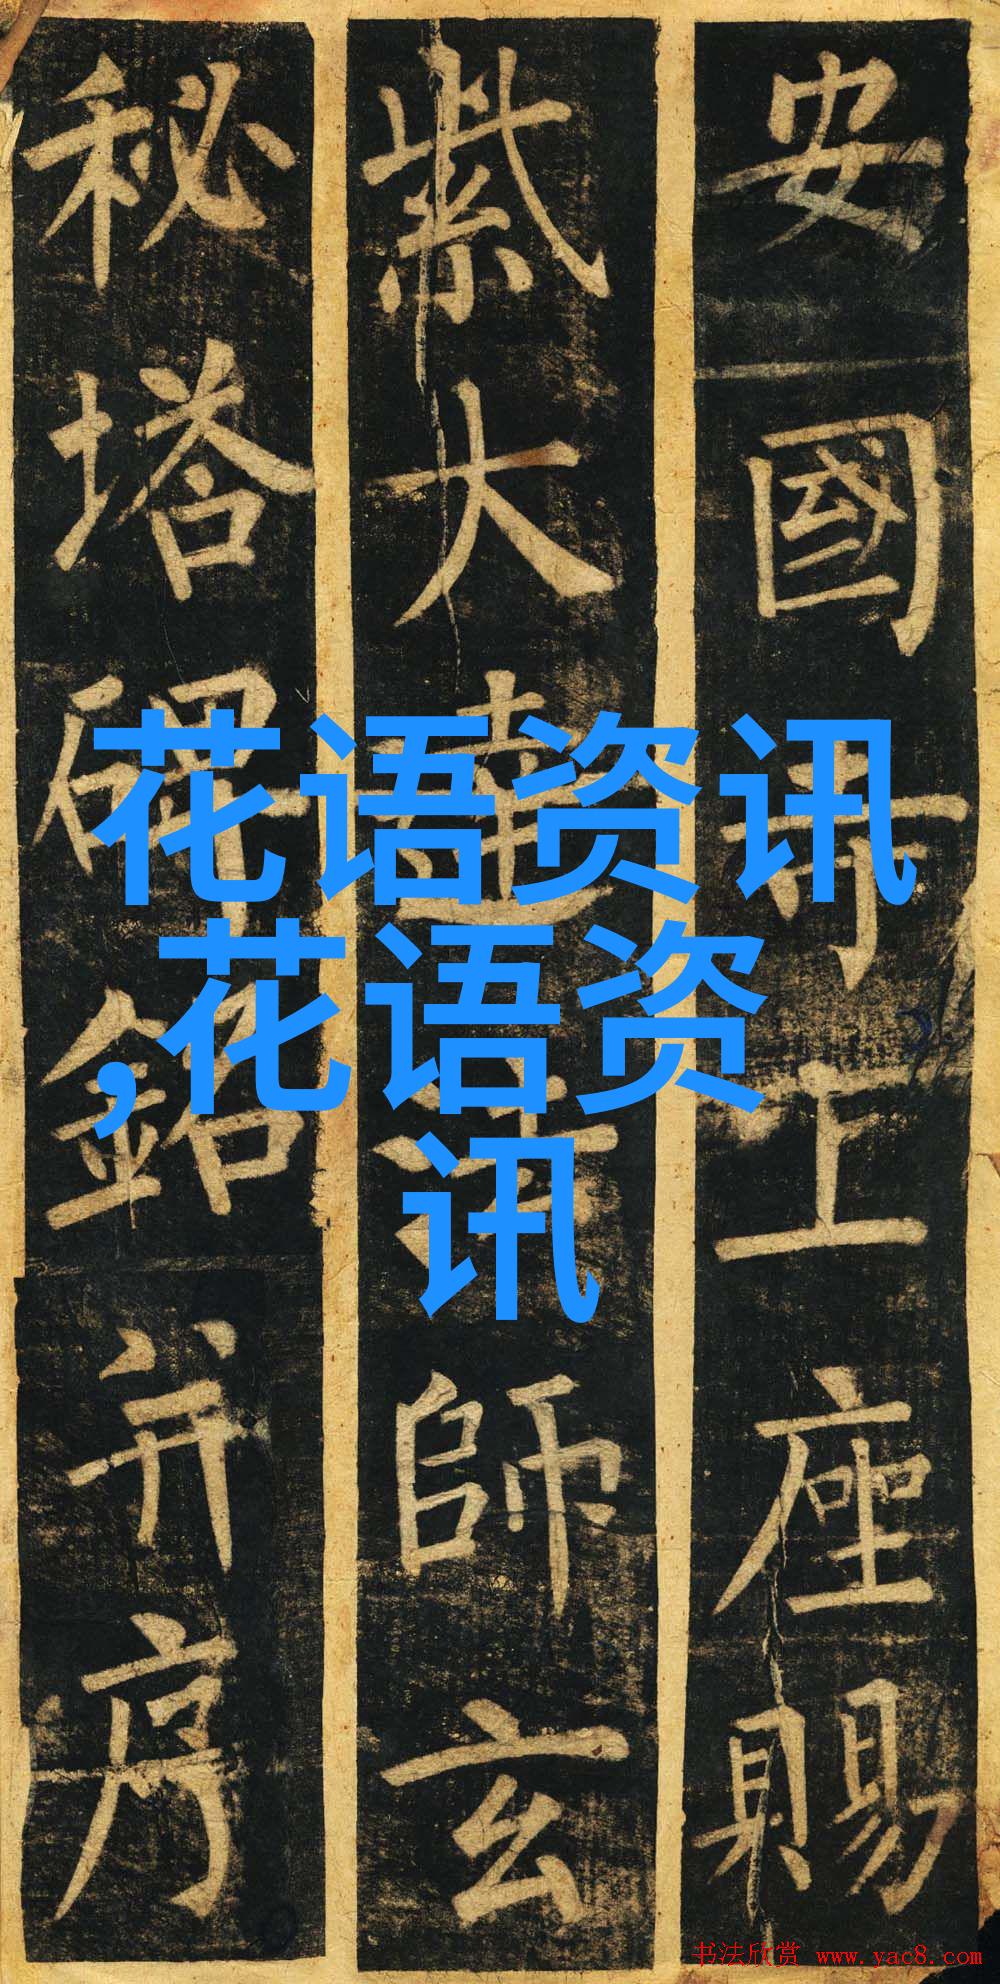 安國寺上座賜
紫大達法師玄
秘塔碑銘并序
花语资讯
,花语资
讯
书法欣赏 www.yac8.com